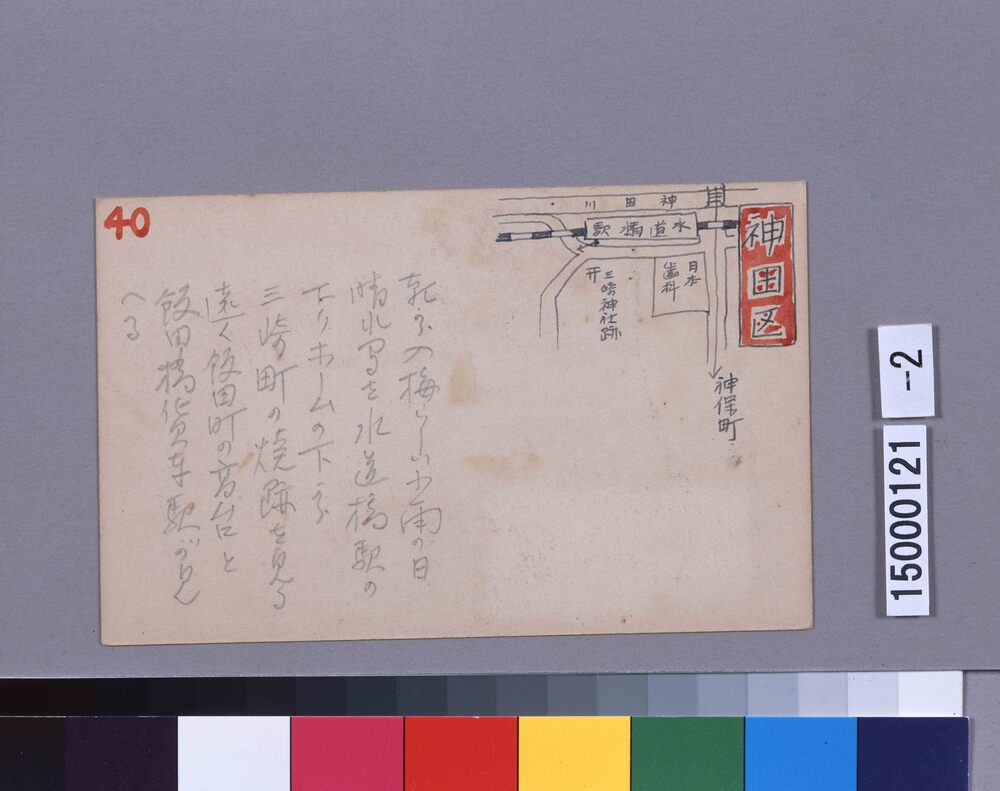 40
神田区
神田川
水道橋駅
日本
歯科
三崎神社跡
神保町
入梅らしい小雨の日
晴れ間を水道橋駅の
ホームの下から
三崎町の焼跡を見る
遠く飯田町の高台と
飯田橋貨車駅が見
へる
15000121
-2